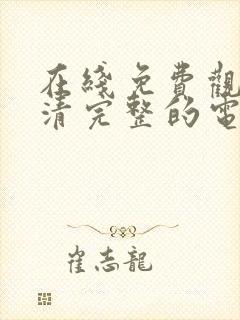 在綫免費觀
清完整的電
崔志龍